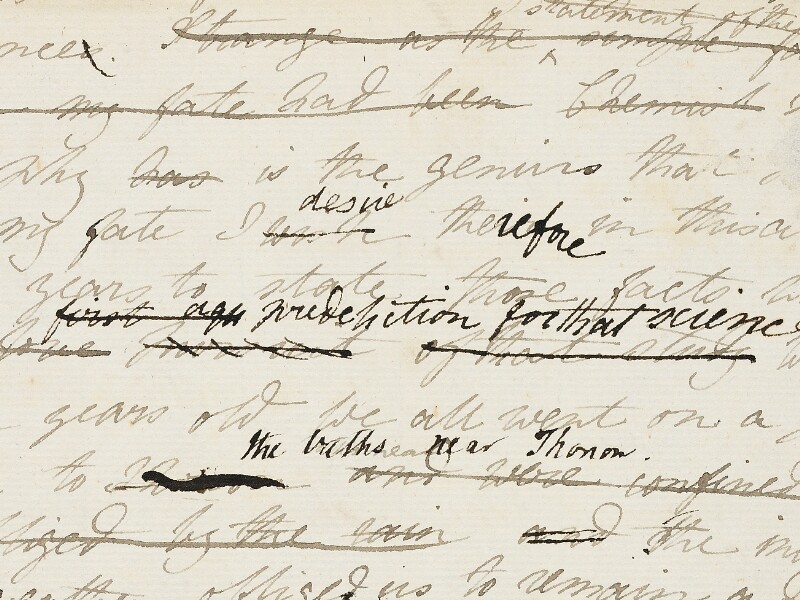 statement of the
Strange as the simple
my fate had been Chemist
why has is the genius that
desire
my fate I wish therefore in this
years to state those facts
first agu predeliction for that science
of that
years old we all went on a
the baths near Thonon.
to and were confined
by the rain and the
obliged us to remain a